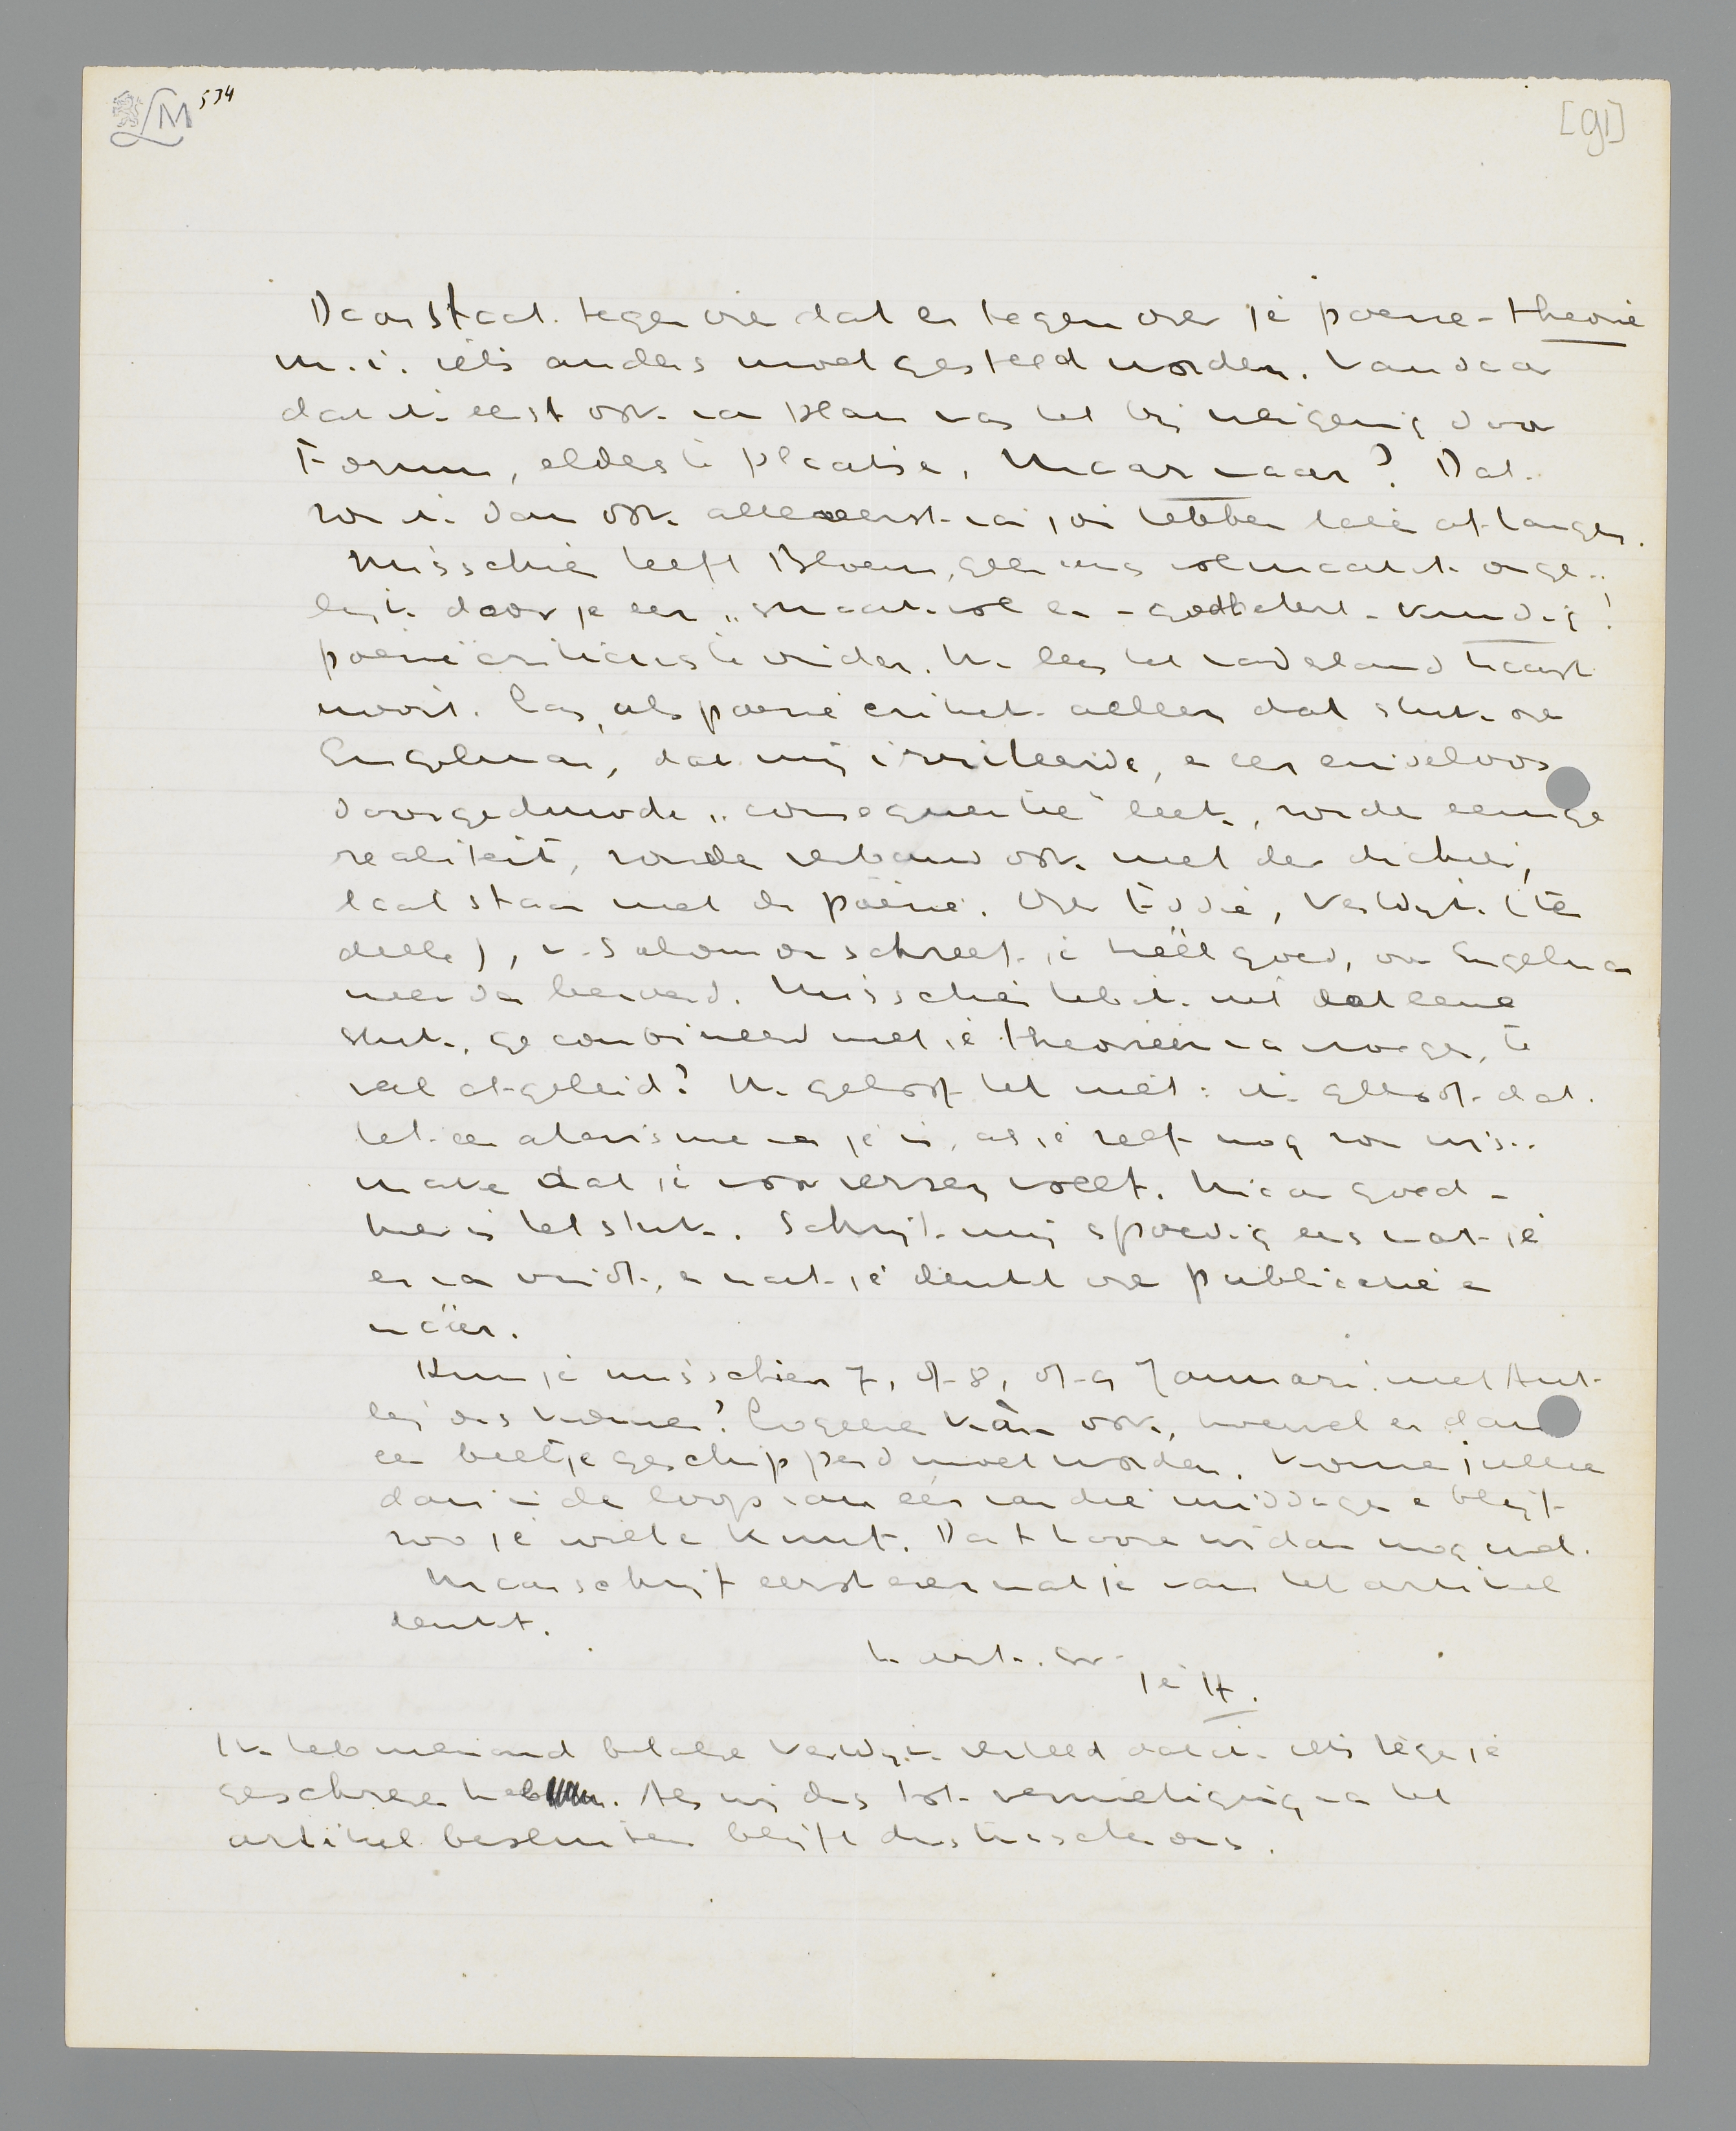 LM 534
[91]
Daar staat tegenover dat er tegenover je poëzie-theorie
m.i. iets anders moet gesteld worden. Vandaar
dat ik eerst ook van plan was het bij weigering door
Forum, elders te plaatsen. Maar waar? Dat
zou ik dan ook allereerst van jou hebben laten afhangen.
Misschien heeft Bloem, geenszins volmaakt onge-
lijk door je een „smaakvol en - goedtekst-kundig!
poëziecriticus te vinden. Ik lees het Vaderland haast
nooit. Las, als poëziecritiek alleen dat stuk over
Engelman, dat mij irriteerde, een eindeloos
doorgeduwde „consequentie" leek, zonder eenige
realiteit, zonder verband ook met den dichter,
laat staan met de poëzie. Over Eddie, Verwijk (ten
deele), v. Salomon schreef je héél goed, over Engelman
meer dan beroerd. Misschien heb ik uit dat eene
stuk, gecombineerd met je theorieën van vroeger, te
veel afgeleid? Ik geloof het niet: ik geloof dat
het een atavisme van je is, als je zelf nog zou wijs-
maken dat je voor verzen voelt. Maar goed -
hier is het stuk. Schrijf mij spoedig eens wat je
er van vindt, en wat je denkt over publicatie en
waar.
Kun je misschien 7, of 8, of 9 Januari met Ant
bij ons komen? Logeeren kàn ook, hoewel er dan
een beetje geschipperd moet worden. Komen jullie
dan in de loop van één van die middagen en blijf
zoo je wilt en kunt. Dat hooren wij dan nog wel.
Maar schrijf eerst even wat je van het artikel
denkt.
h. gr.
je H.
Ik heb niemand behalve Verwijk verteld dat ik iets tegen je
geschreven heb. Als wij dus tot vernietiging van het
artikel besluiten blijft dit tusschen ons.